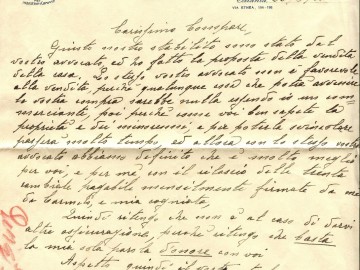 VIA ETNEA, 184-186
Carissimo Compare,
Giusto nostro stabilito sono stato dal
vostro avvocato, ed ho fatto la proposta della vendita
della casa. Lo stesso vostro avvocato non è favorevole
alla vendita perchè qualunque cosa che potrà avvenire
la vostra compra sarebbe nulla essendo io un com-
merciante, poi perchè come voi ben sapete la
proprietà è dei minorenni, e per poterla svincolare
passerà molto tempo ed allora con lo stesso vostro
avvocato abbiamo definito che è molto meglio
per voi, e per me, con il rilascio delle trenta
cambiale pagabile mensilmente firmate da me
da Carmelo, e mia cognata,
Quindi ritengo che non è al caso di darvi
altre assicurazione perchè ritengo che basta
la mia esta parola d'onore con voi
Aspetto quindi il vostro